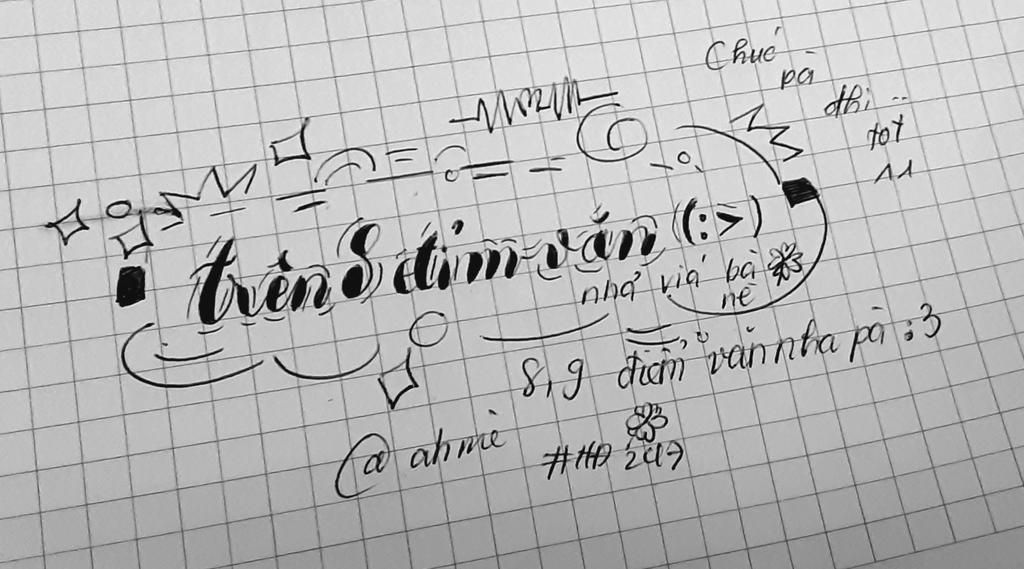 Chué
pà
thi
tot
^^
trên 8 điểm văn (:>)
nhả vía bà
nè
8,9 điểm văn nha pà :3
@ahmè